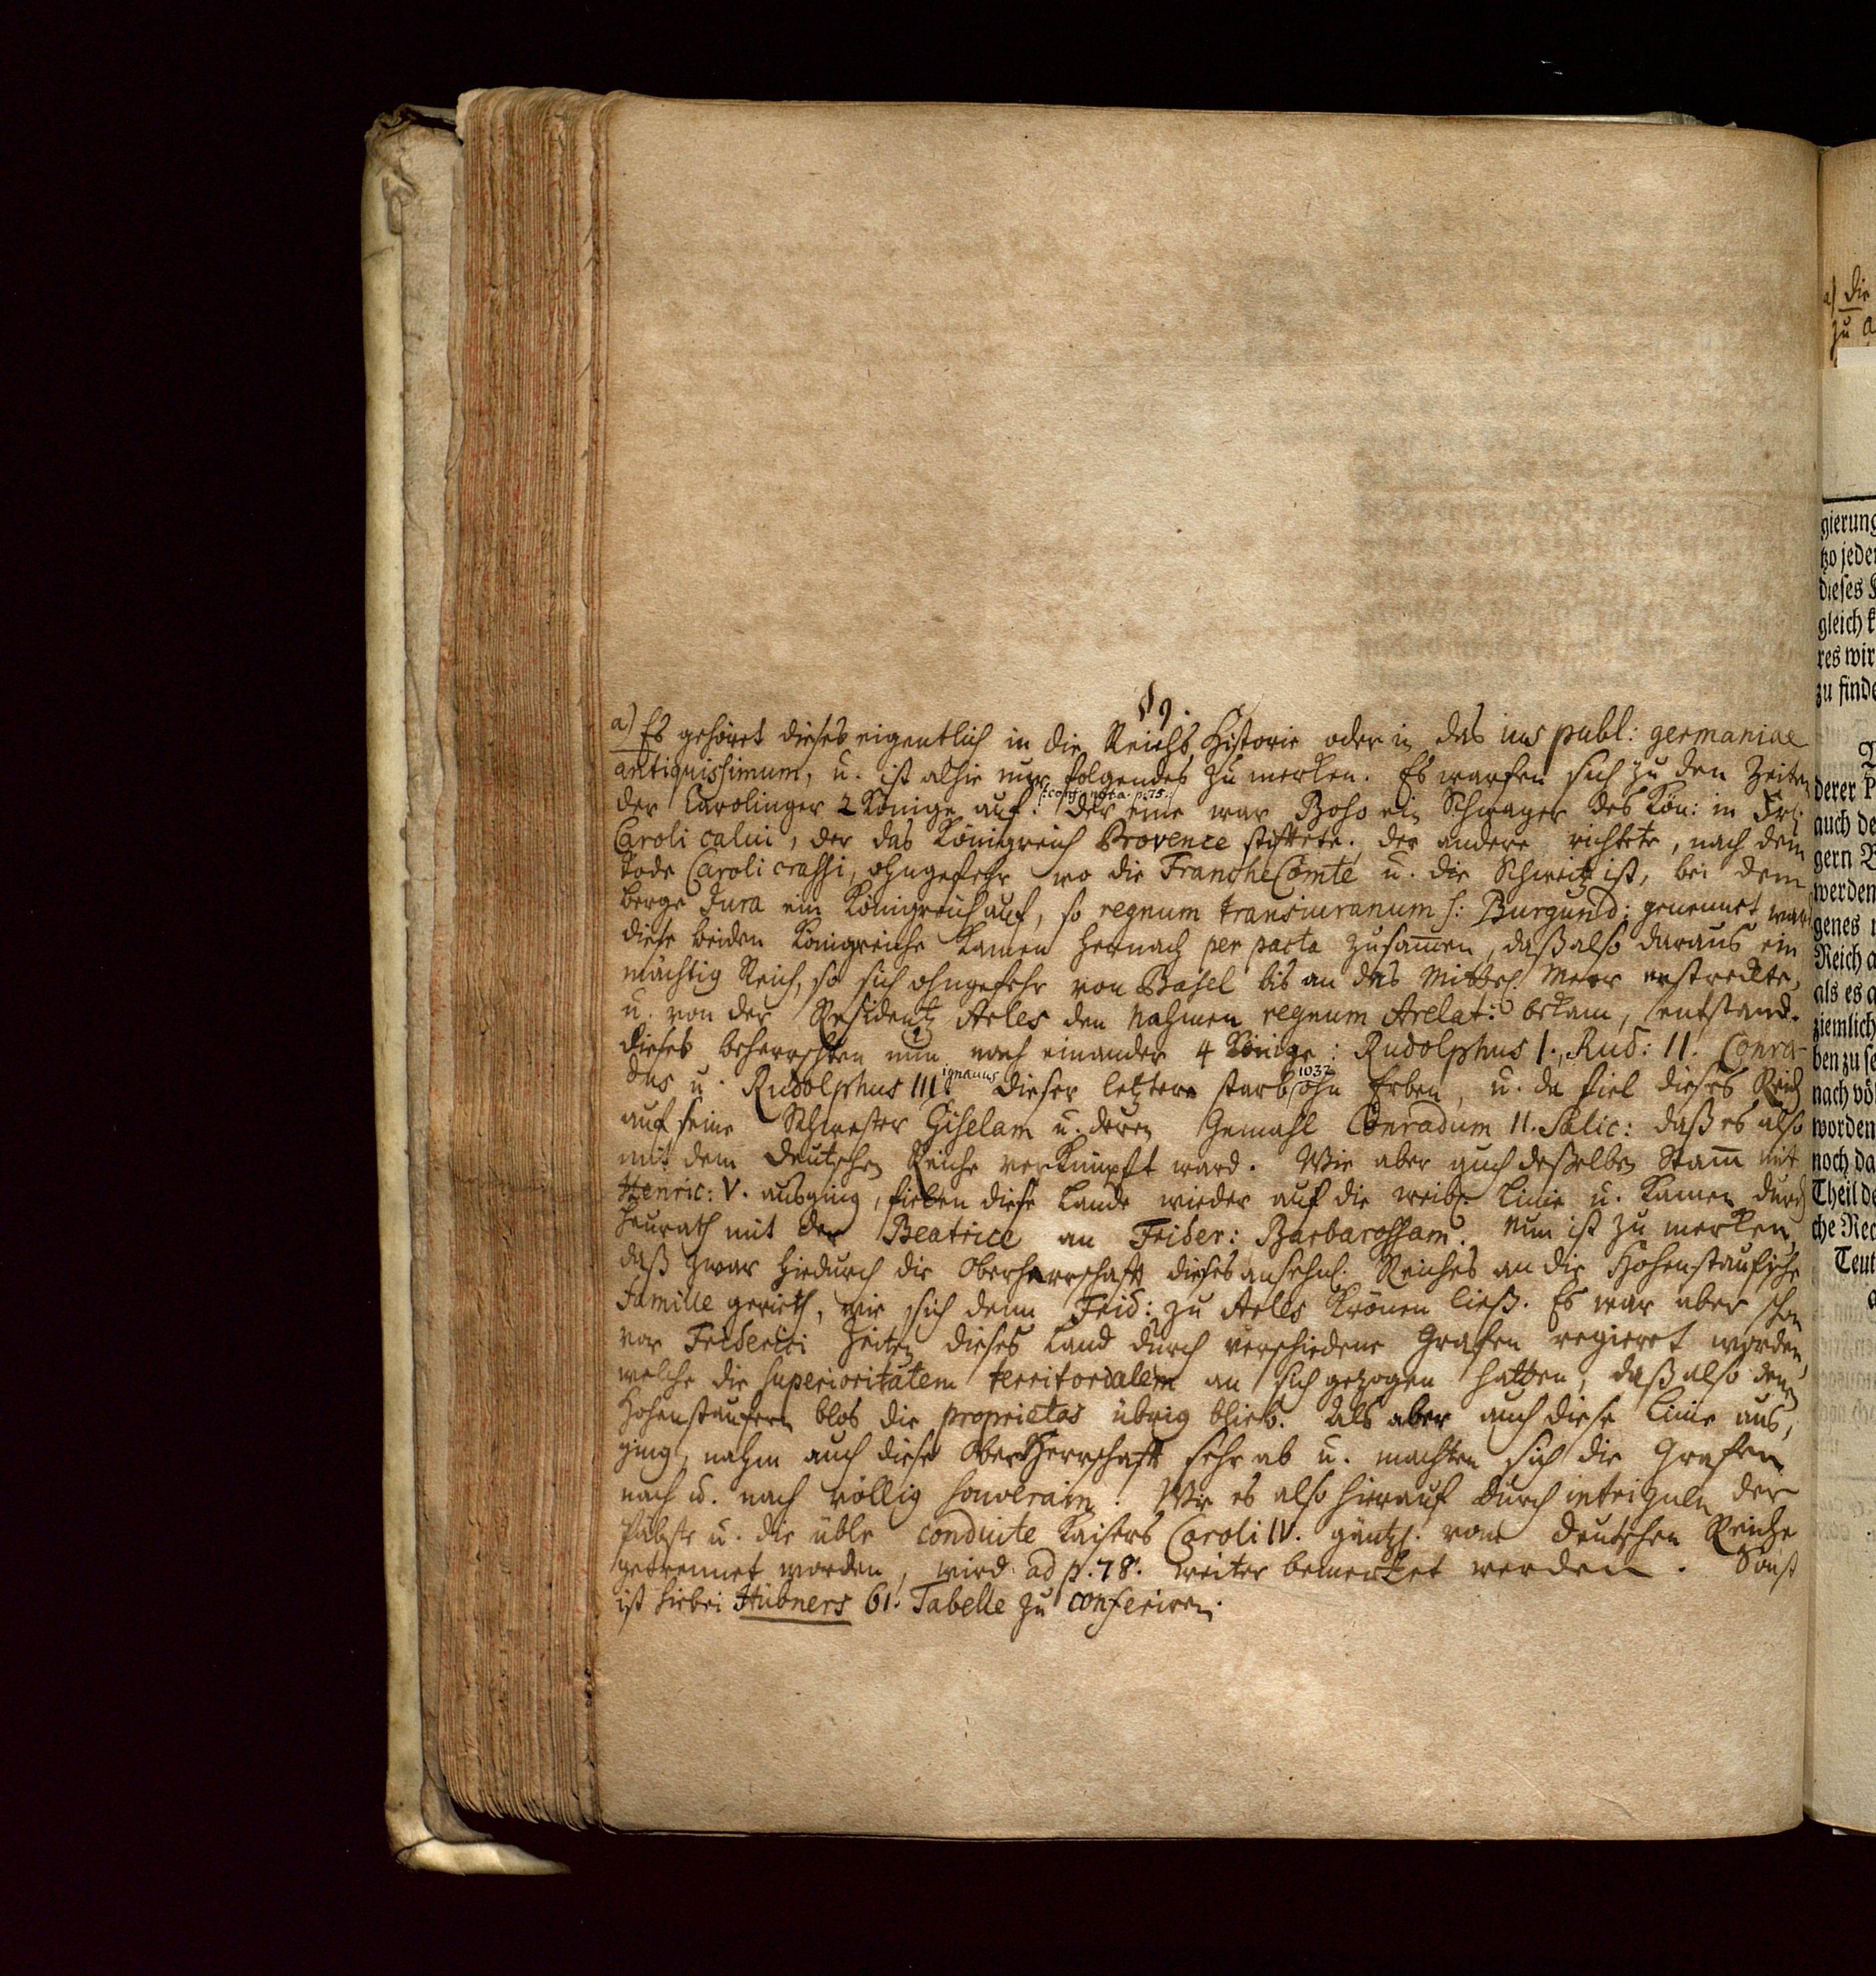 § 9.
a) Es gehöret dieses eigentlich in die Reichs Historie oder in das ius publ: germaniae
antiquissimum, u. ist alhie nur folgendes zu merken. Es warfen sich zu den Zeiten
der Carolinger 2 Könige auf. (: conf. nota. p. 75. :) Der eine war Boso ein Schwager des Kön: in Fr:
Caroli calui, der das Königreich Provence stiftete. der andere richtete, nach dem
Tode Caroli crassi, ohngefehr wo die Franche Comte u. die Schweitz ist, bei dem
Berge Jura ein Königreich auf, so regnum transiuranum s: Burgund: genennet ward
diese beiden Königreiche kamen hernach per pacta zusam̅en, daß also daraus ein
mächtig Reich, so sich ohngefehr von Basel bis an das Mittel. Meer erstreckte,
u. von der Residentz Arles den Nahmen regnum Arelat: bekam, entstand.
dieses beherrschten nun nach einander 4 Könige: Rudolphus I., Rud: II. Conra-
dus u. Rudolphus III. ignauus dieser letztere starb 1032 ohn Erben, u. da fiel dieses Reich
auf seine Schwester Giselam u. deren Gemahl Conradum II. Salic: daß es also
mit dem Deutschen Reiche verknüpft ward. Wie aber auch deßelben Stam̅ mit
Henric: V. ausging, fielen diese Lande wieder auf die weibl. Linie u. kamen durch
Heurath mit der Beatrice an Frider: Barbarossam. Nun ist zu merken,
daß zwar hiedurch die Oberherrschaft dieses ansehnl. Reiches an die Hohenstaufische
Familie gerieth, wie sich denn Frid: zu Arles krönen ließ. Es war aber schon
vor Friderici Zeiten dieses Land durch verschiedene Grafen regieret worden,
welche die superioritatem territorialem an sich gezogen hatten, daß also denen
Hohenstaufern blos die proprietas übrig blieb. Als aber auch diese Linie aus,
ging, nahm auch diese OberHerrschaft sehr ab u. machten sich die Grafen
nach u. nach völlig souverain. Wie es also hierauf durch intriguen der
Päbste u. die üble conduite Kaisers Caroli IV. gäntzl. vom deutschen Reiche
getrennet worden, wird ad p. 78. weiter bemerket werden. Sonst
ist hiebei Hübners 61. Tabelle zu conferiren.
a) Die
zu
gierung
tzo jede
dieses
gleich
res wir
zu finde
derer P
auch de
gern
werden
genes
Reich
als es
ziemlich
ben zu se
nach vö
worden
noch da
Theil de
che Rec
Teut